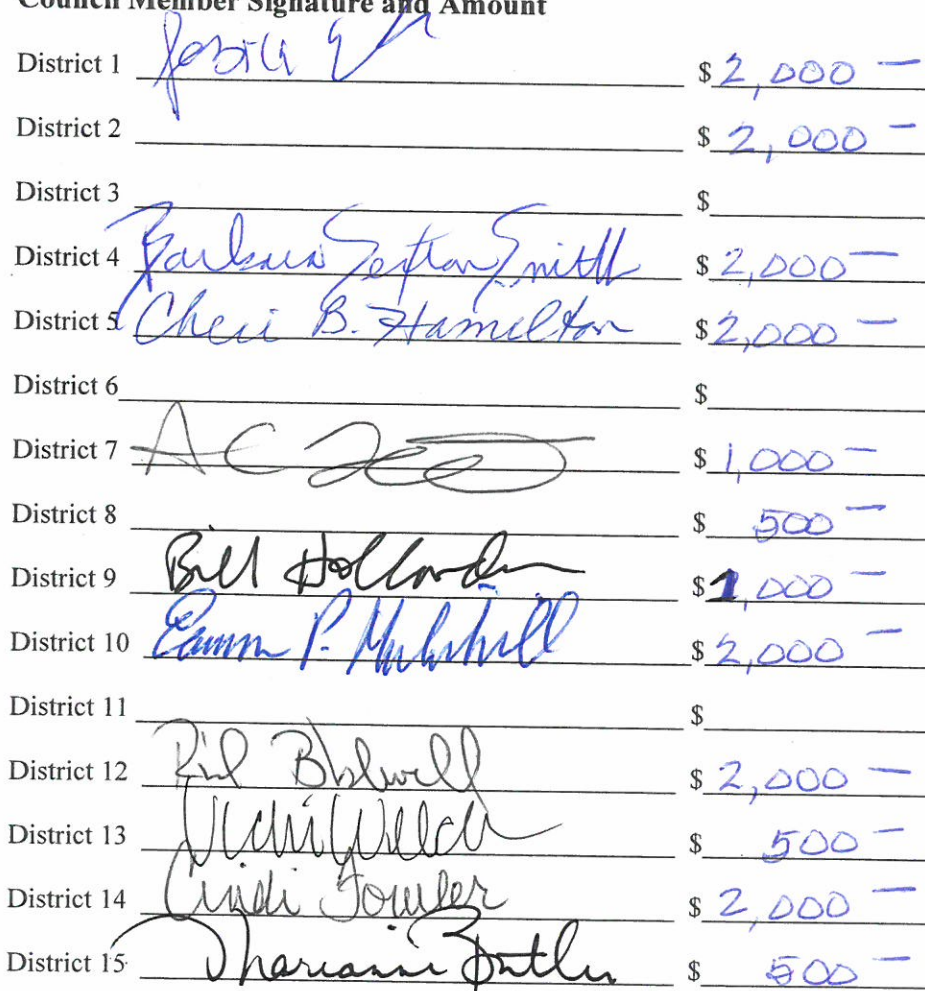 Council Member Signature and Amount
District 1 $ 2,000 —
District 2 $ 2,000 —
District 3 $
District 4 Barbara Sexton Smith $ 2,000 —
District 5 Cheri B. Hamilton $ 2,000 —
District 6 $
District 7 $ 1,000 —
District 8 $ 500 —
District 9 Bill Hollander $ 1,000 —
District 10 P. $ 2,000 —
District 11 $
District 12 $ 2,000 —
District 13 Vicki Welch $ 500 —
District 14 Cindi Fowler $ 2,000 —
District 15 Marianne Butler $ 500 —